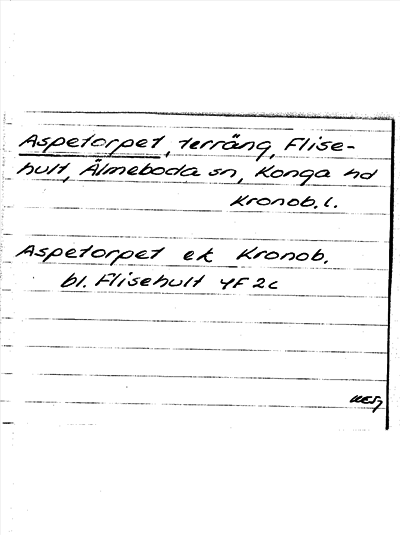 Aspetorpet, terräng, Flise-
hult, Älmeboda sn, Konga hd
Kronob. l.
Aspetorpet ek Kronob.
bl. Flisehult 4F 2c